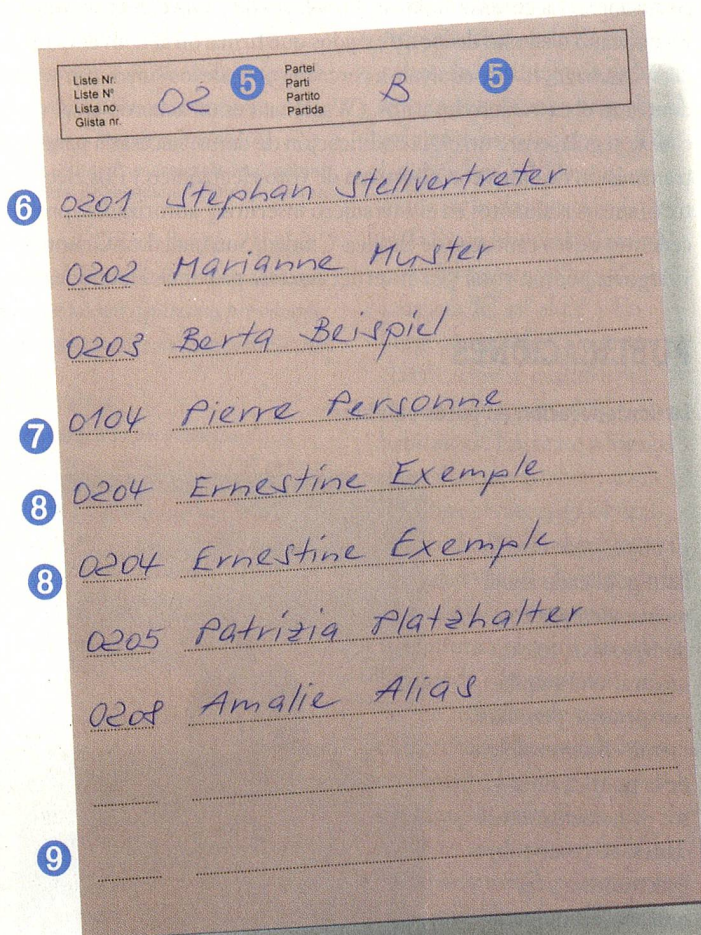 Liste Nr. 02 5 Partei B 5
Liste N° Parti
Lista no. Partito
Glista nr. Partida
6 0201 Stephan Stellvertreter
0202 Marianne Muster
0203 Berta Beispiel
7 0104 Pierre Personne
8 0204 Ernestine Exemple
8 0204 Ernestine Exemple
0205 Patrizia Platzhalter
0208 Amalie Alias
9